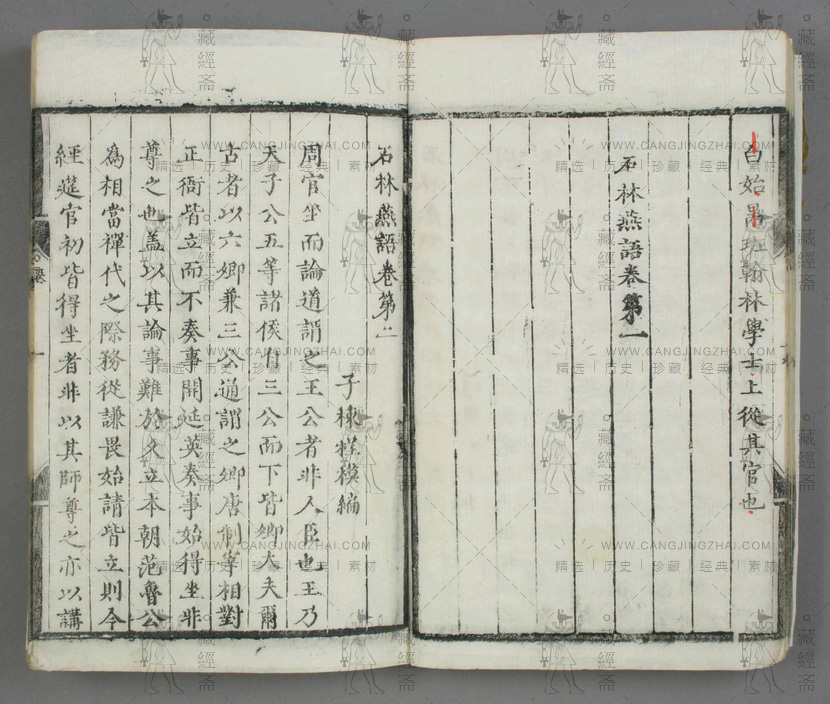 自始易班翰林學士上從其官也
石林燕語卷第一
石林燕語卷第二
子棟桯模編
周官坐而論道謂之王公者非人臣也王乃
天子公五等諸侯自三公而下皆卿大夫爾
古者以六卿兼三公通謂之卿唐制宰相對
正衙皆立而不奏事開延英奏事始得坐非
尊之也蓋以其論事難於久立本朝范魯公
為相當禪代之際務從謙畏始請皆立則今
經筵官初皆得坐者非以其師尊之亦以講
藏經斋
WWW.CANGJINGZHAI.COM
精选 | 历史 | 珍藏 | 经典 | 素材